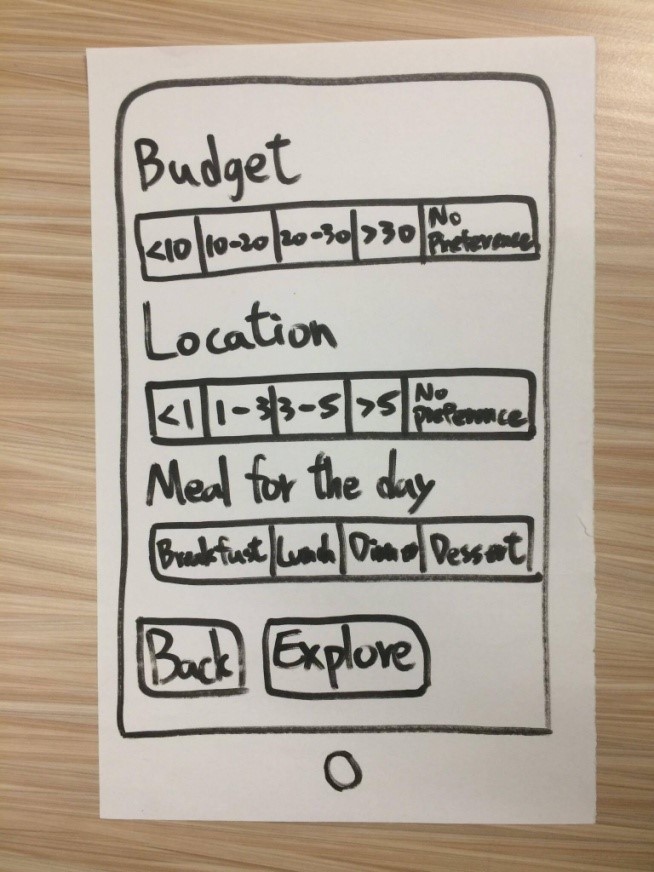 Budget
<10 10-20 20-30 >30 No Preference
Location
<1 1-3 3-5 >5 No preference
Meal for the day
Breakfast Lunch Dinner Dessert
Back Explore